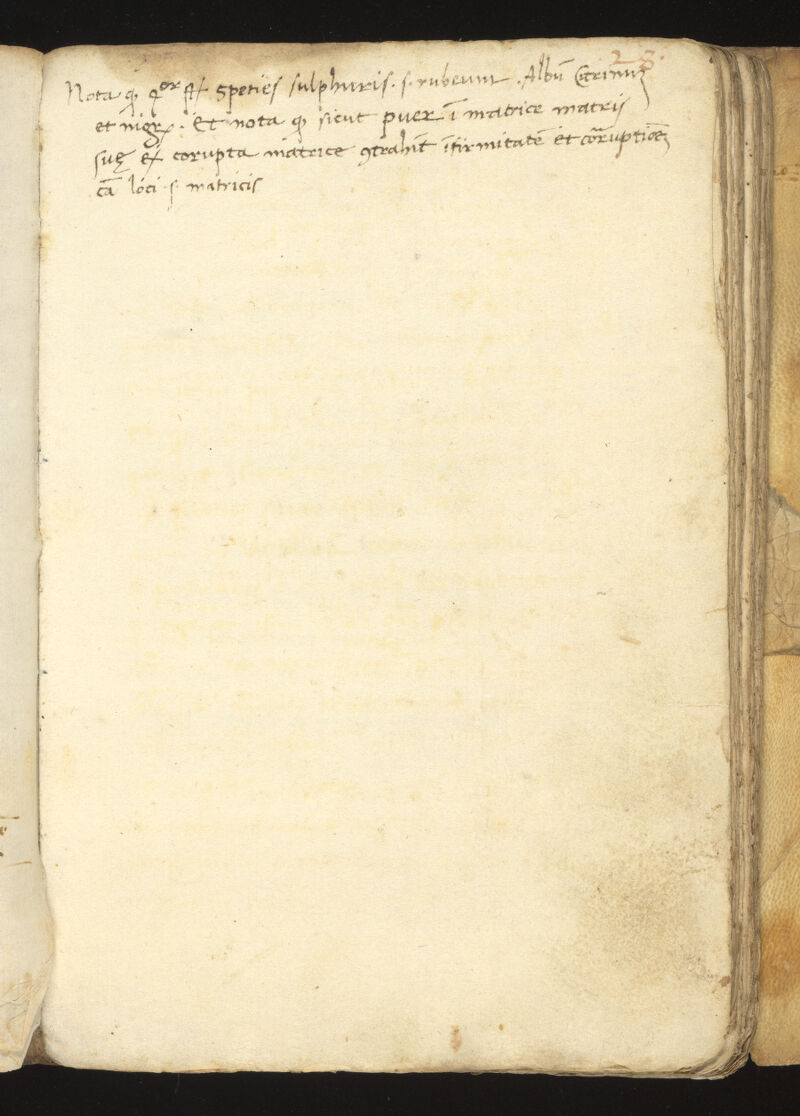 23.
Nota ꝙ qͣͭͦr sꝭ speties sulphuris . s. rubeum . Albū Citrinuꝫ
et nigrꝝ . Et nota ꝙ sicut puer ī matrice matris
suę ex corupta matrice ꝯtrahit īfirmitatē et corruptionēꝫ
cā loci . s. matricis